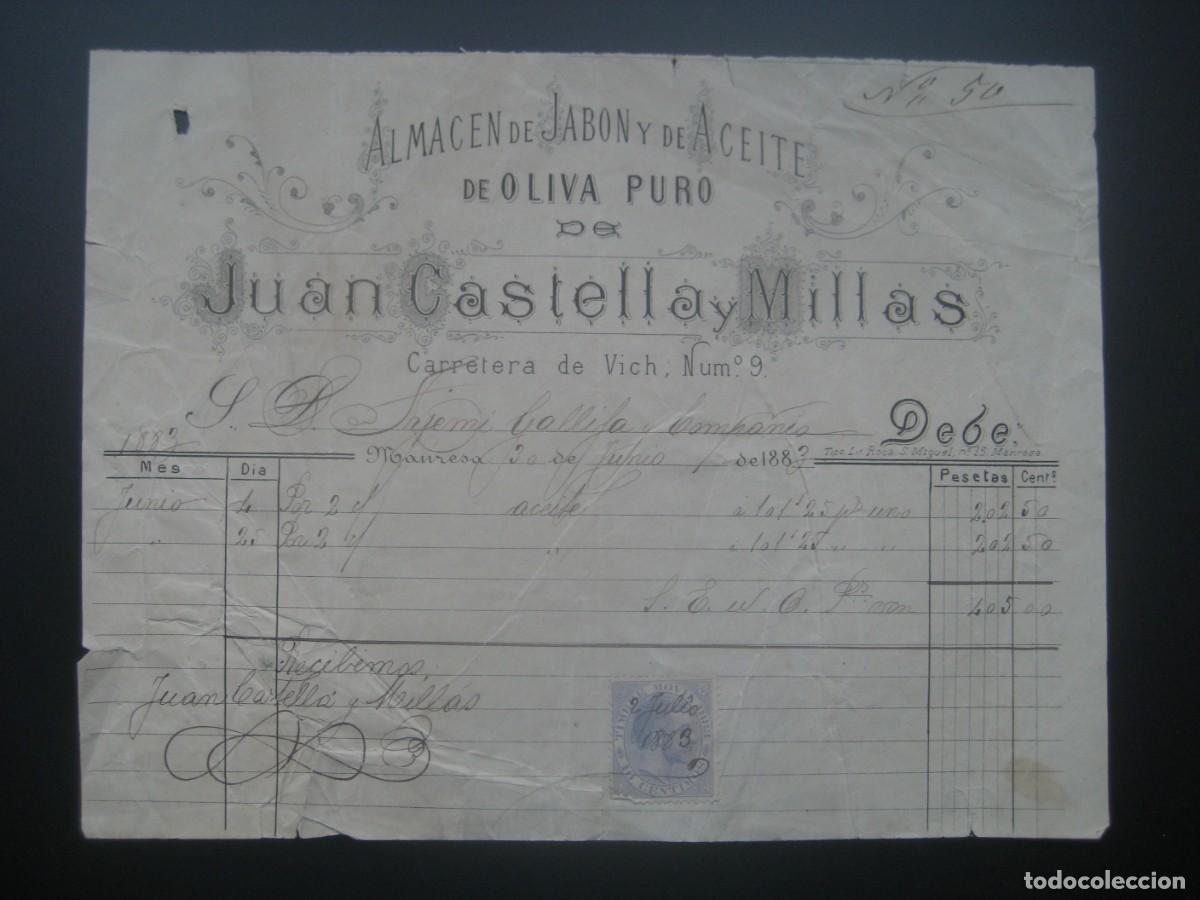 Nº 50
ALMACEN DE JABON Y DE ACEITE
DE OLIVA PURO
DE
Juan Castella y Millas
Carretera de Vich, Numº 9.
S. D. Gallifa y Compañia Debe,
1883 Manresa 30 de Junio de 1883 Tipo. Lit. Roca S. Miguel, nº 15, Manresa.
Mes Dia Pesetas Cents
Junio 4 Por 2 aceite á 101'25 uno 202 50
" 25 Por 2 " á 101'25 " " 202 50
S. E. ú O. Pts 405 00
Recibimos
Juan Castella y Millás
TIMBRE MOVIL
2 Julio
1883
10 CENTIMOS
todocoleccion